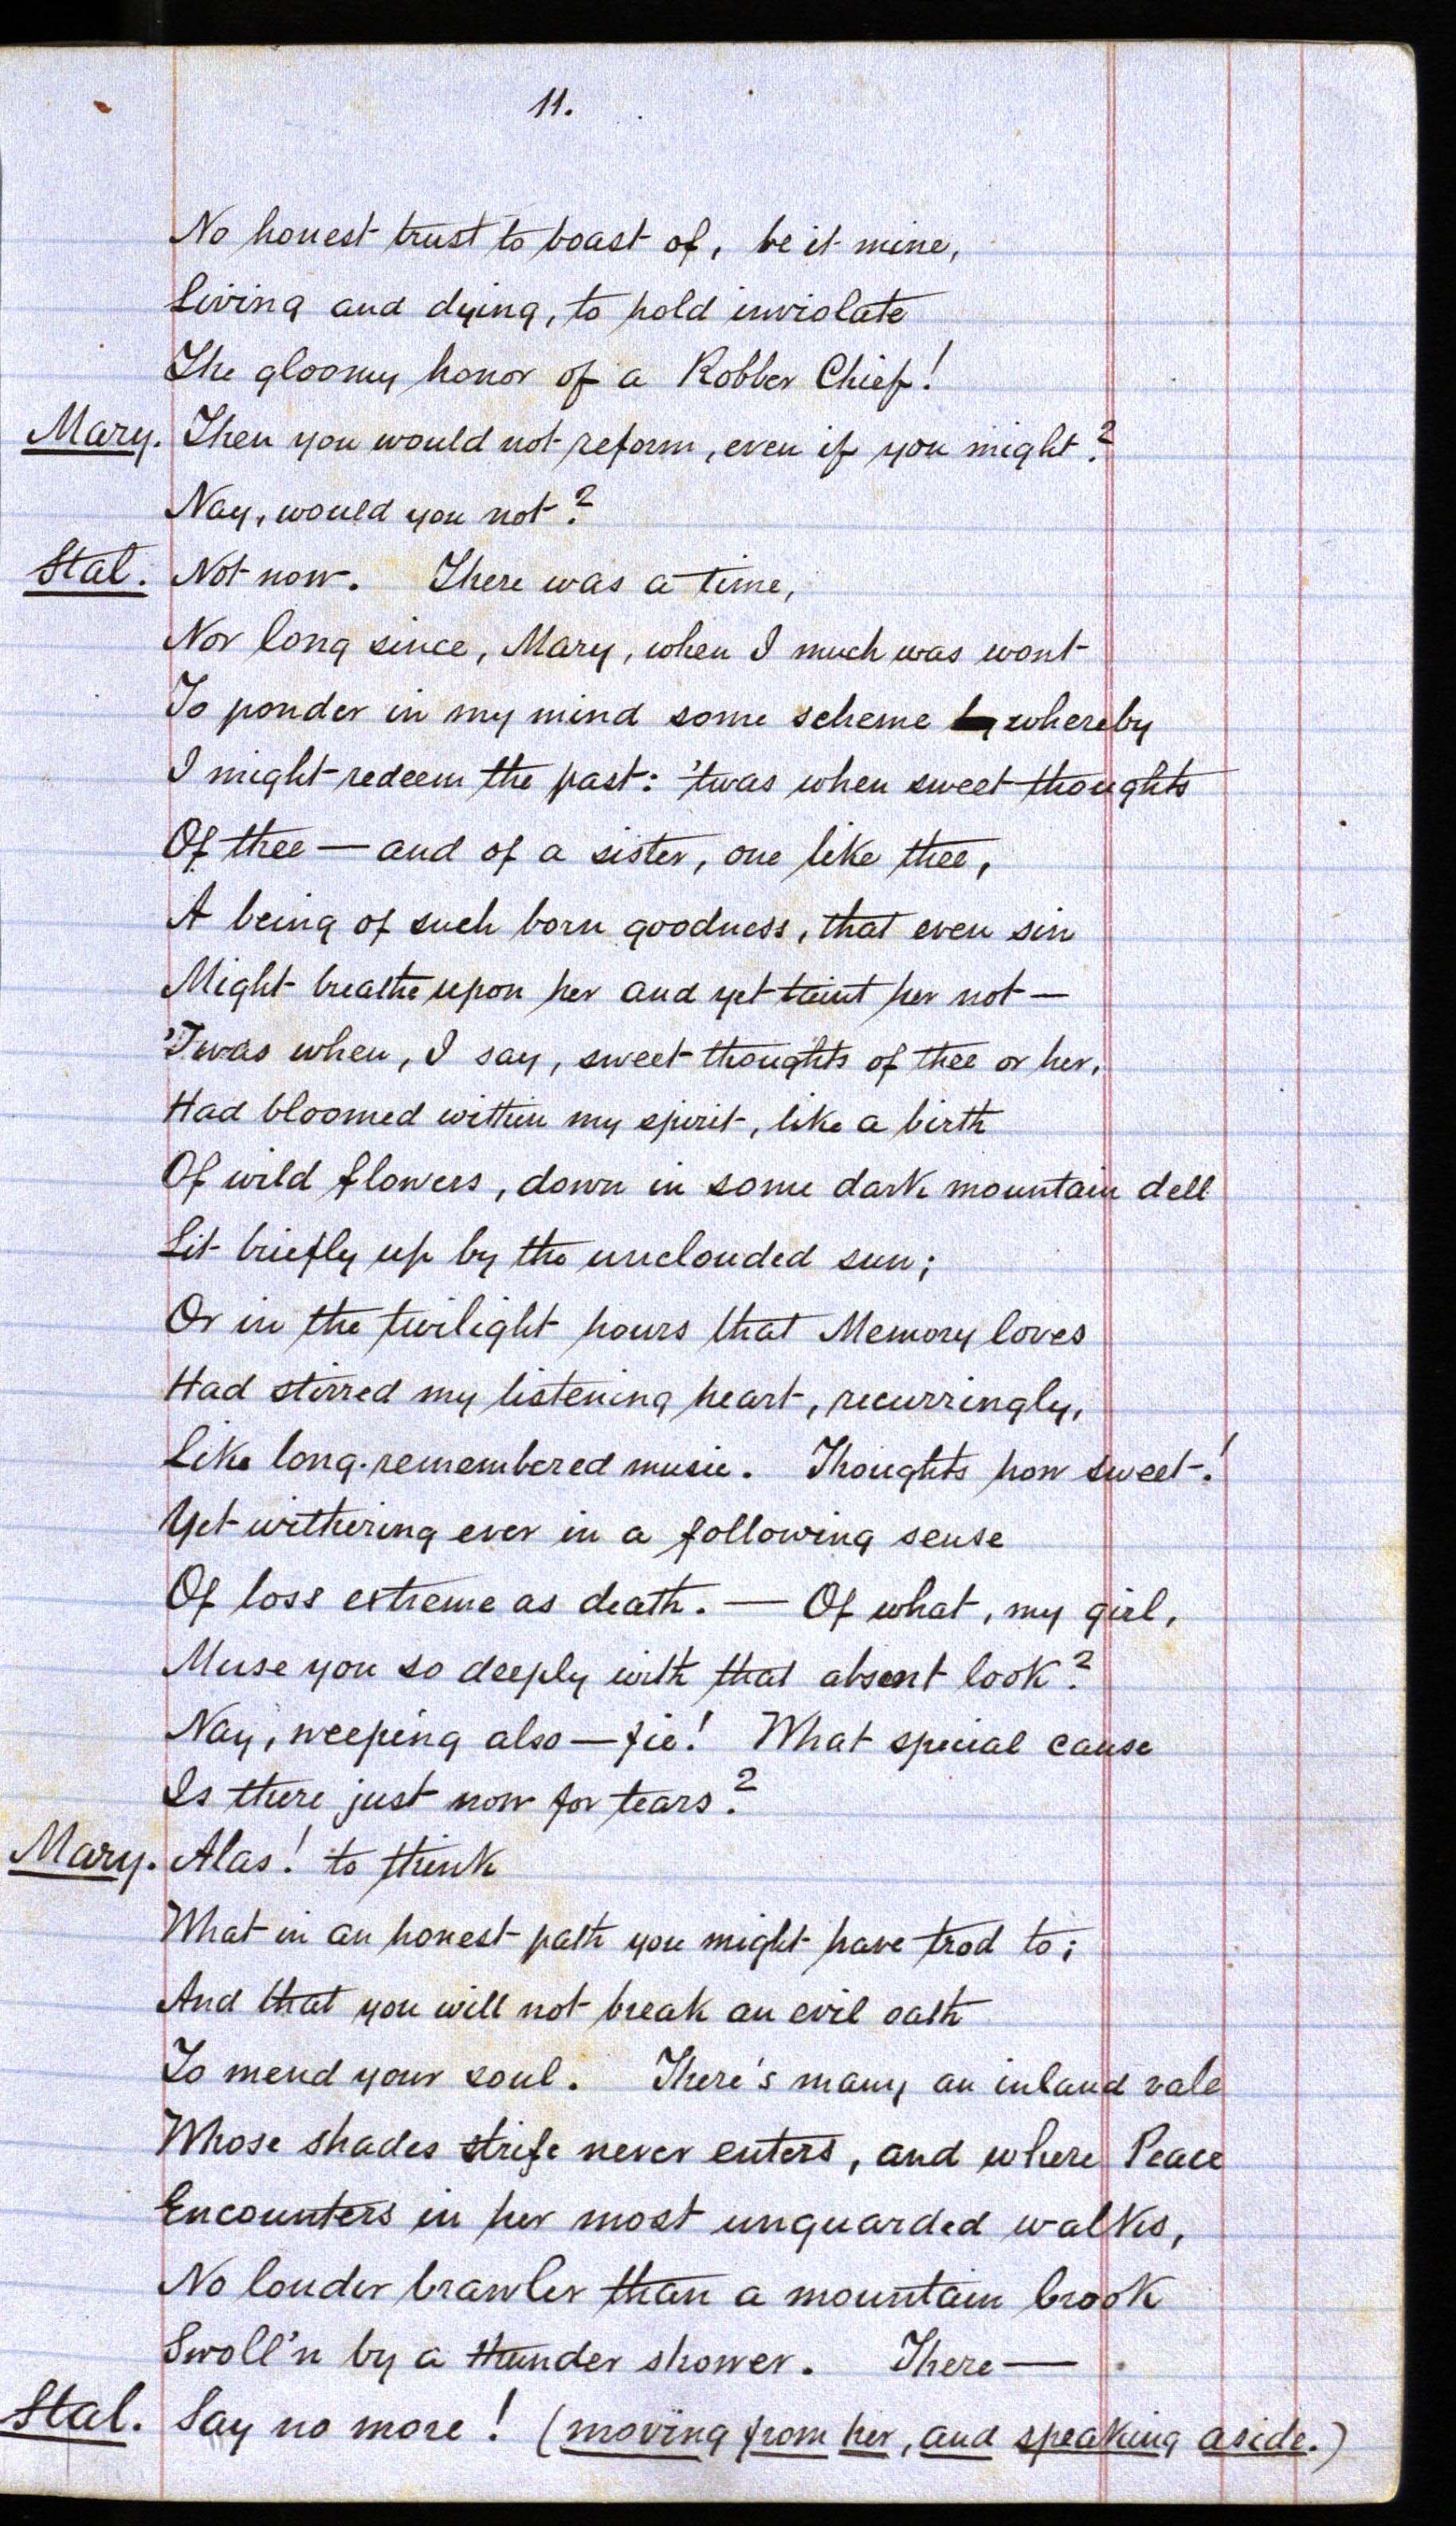 11.
No honest trust to boast of, be it mine,
Living and dying, to hold inviolate
The gloomy honor of a Robber Chief!
Mary. Then you would not reform, even if you might?
Nay, would you not?
Stal. Not now. There was a time,
Nor long since, Mary, when I much was wont
To ponder in my mind some scheme whereby
I might redeem the past: 'twas when sweet thoughts
Of thee — and of a sister, one like thee,
A being of such born goodness, that even sin
Might breathe upon her and yet taint her not —
'Twas when, I say, sweet thoughts of thee or her,
Had bloomed within my spirit, like a birth
Of wild flowers, down in some dark mountain dell
Lit briefly up by the unclouded sun;
Or in the twilight hours that Memory loves
Had stirred my listening heart, recurringly,
Like long-remembered music. Thoughts how sweet!
Yet withering ever in a following sense
Of loss extreme as death. — Of what, my girl,
Muse you so deeply with that absent look?
Nay, weeping also — fie! What special cause
Is there just now for tears?
Mary. Alas! to think
What in an honest path you might have trod to;
And that you will not break an evil oath
To mend your soul. There's many an inland vale
Whose shades strife never enters, and where Peace
Encounters in her most unguarded walks,
No louder brawler than a mountain brook
Swoll'n by a thunder shower. There —
Stal. Say no more! (moving from her, and speaking aside.)